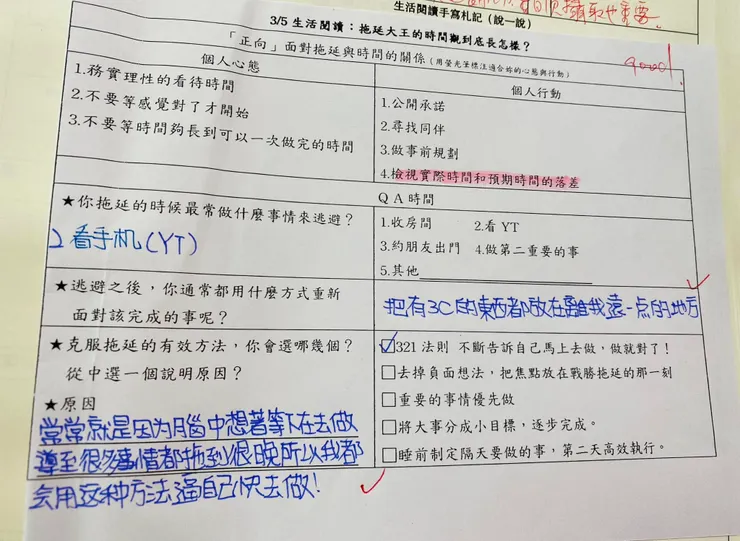 生活閱讀手寫札記（說一說）
3/5 生活閱讀：拖延大王的時間觀到底長怎樣？
「正向」面對拖延與時間的關係（用螢光筆標注適合妳的心態與行動）
good!
個人心態
1.務實理性的看待時間
2.不要等感覺對了才開始
3.不要等時間夠長到可以一次做完的時間
個人行動
1.公開承諾
2.尋找同伴
3.做事前規劃
4.檢視實際時間和預期時間的落差
QA時間
★你拖延的時候最常做什麼事情來逃避？
2 看手机(YT)
1.收房間 2.看 YT
3.約朋友出門 4.做第二重要的事
5.其他
★逃避之後，你通常都用什麼方式重新
面對該完成的事呢？
把有3C的東西都放在離我遠一點的地方
★克服拖延的有效方法，你會選哪幾個？
從中選一個說明原因？
★原因
常常就是因為腦中想著等下在去做
導至很多事情都拖到很晚所以我都
会用这种方法逼自己快去做!
☑321 法則 不斷告訴自己馬上去做，做就對了！
□去掉負面想法，把焦點放在戰勝拖延的那一刻
□重要的事情優先做
□將大事分成小目標，逐步完成。
□睡前制定隔天要做的事，第二天高效執行。